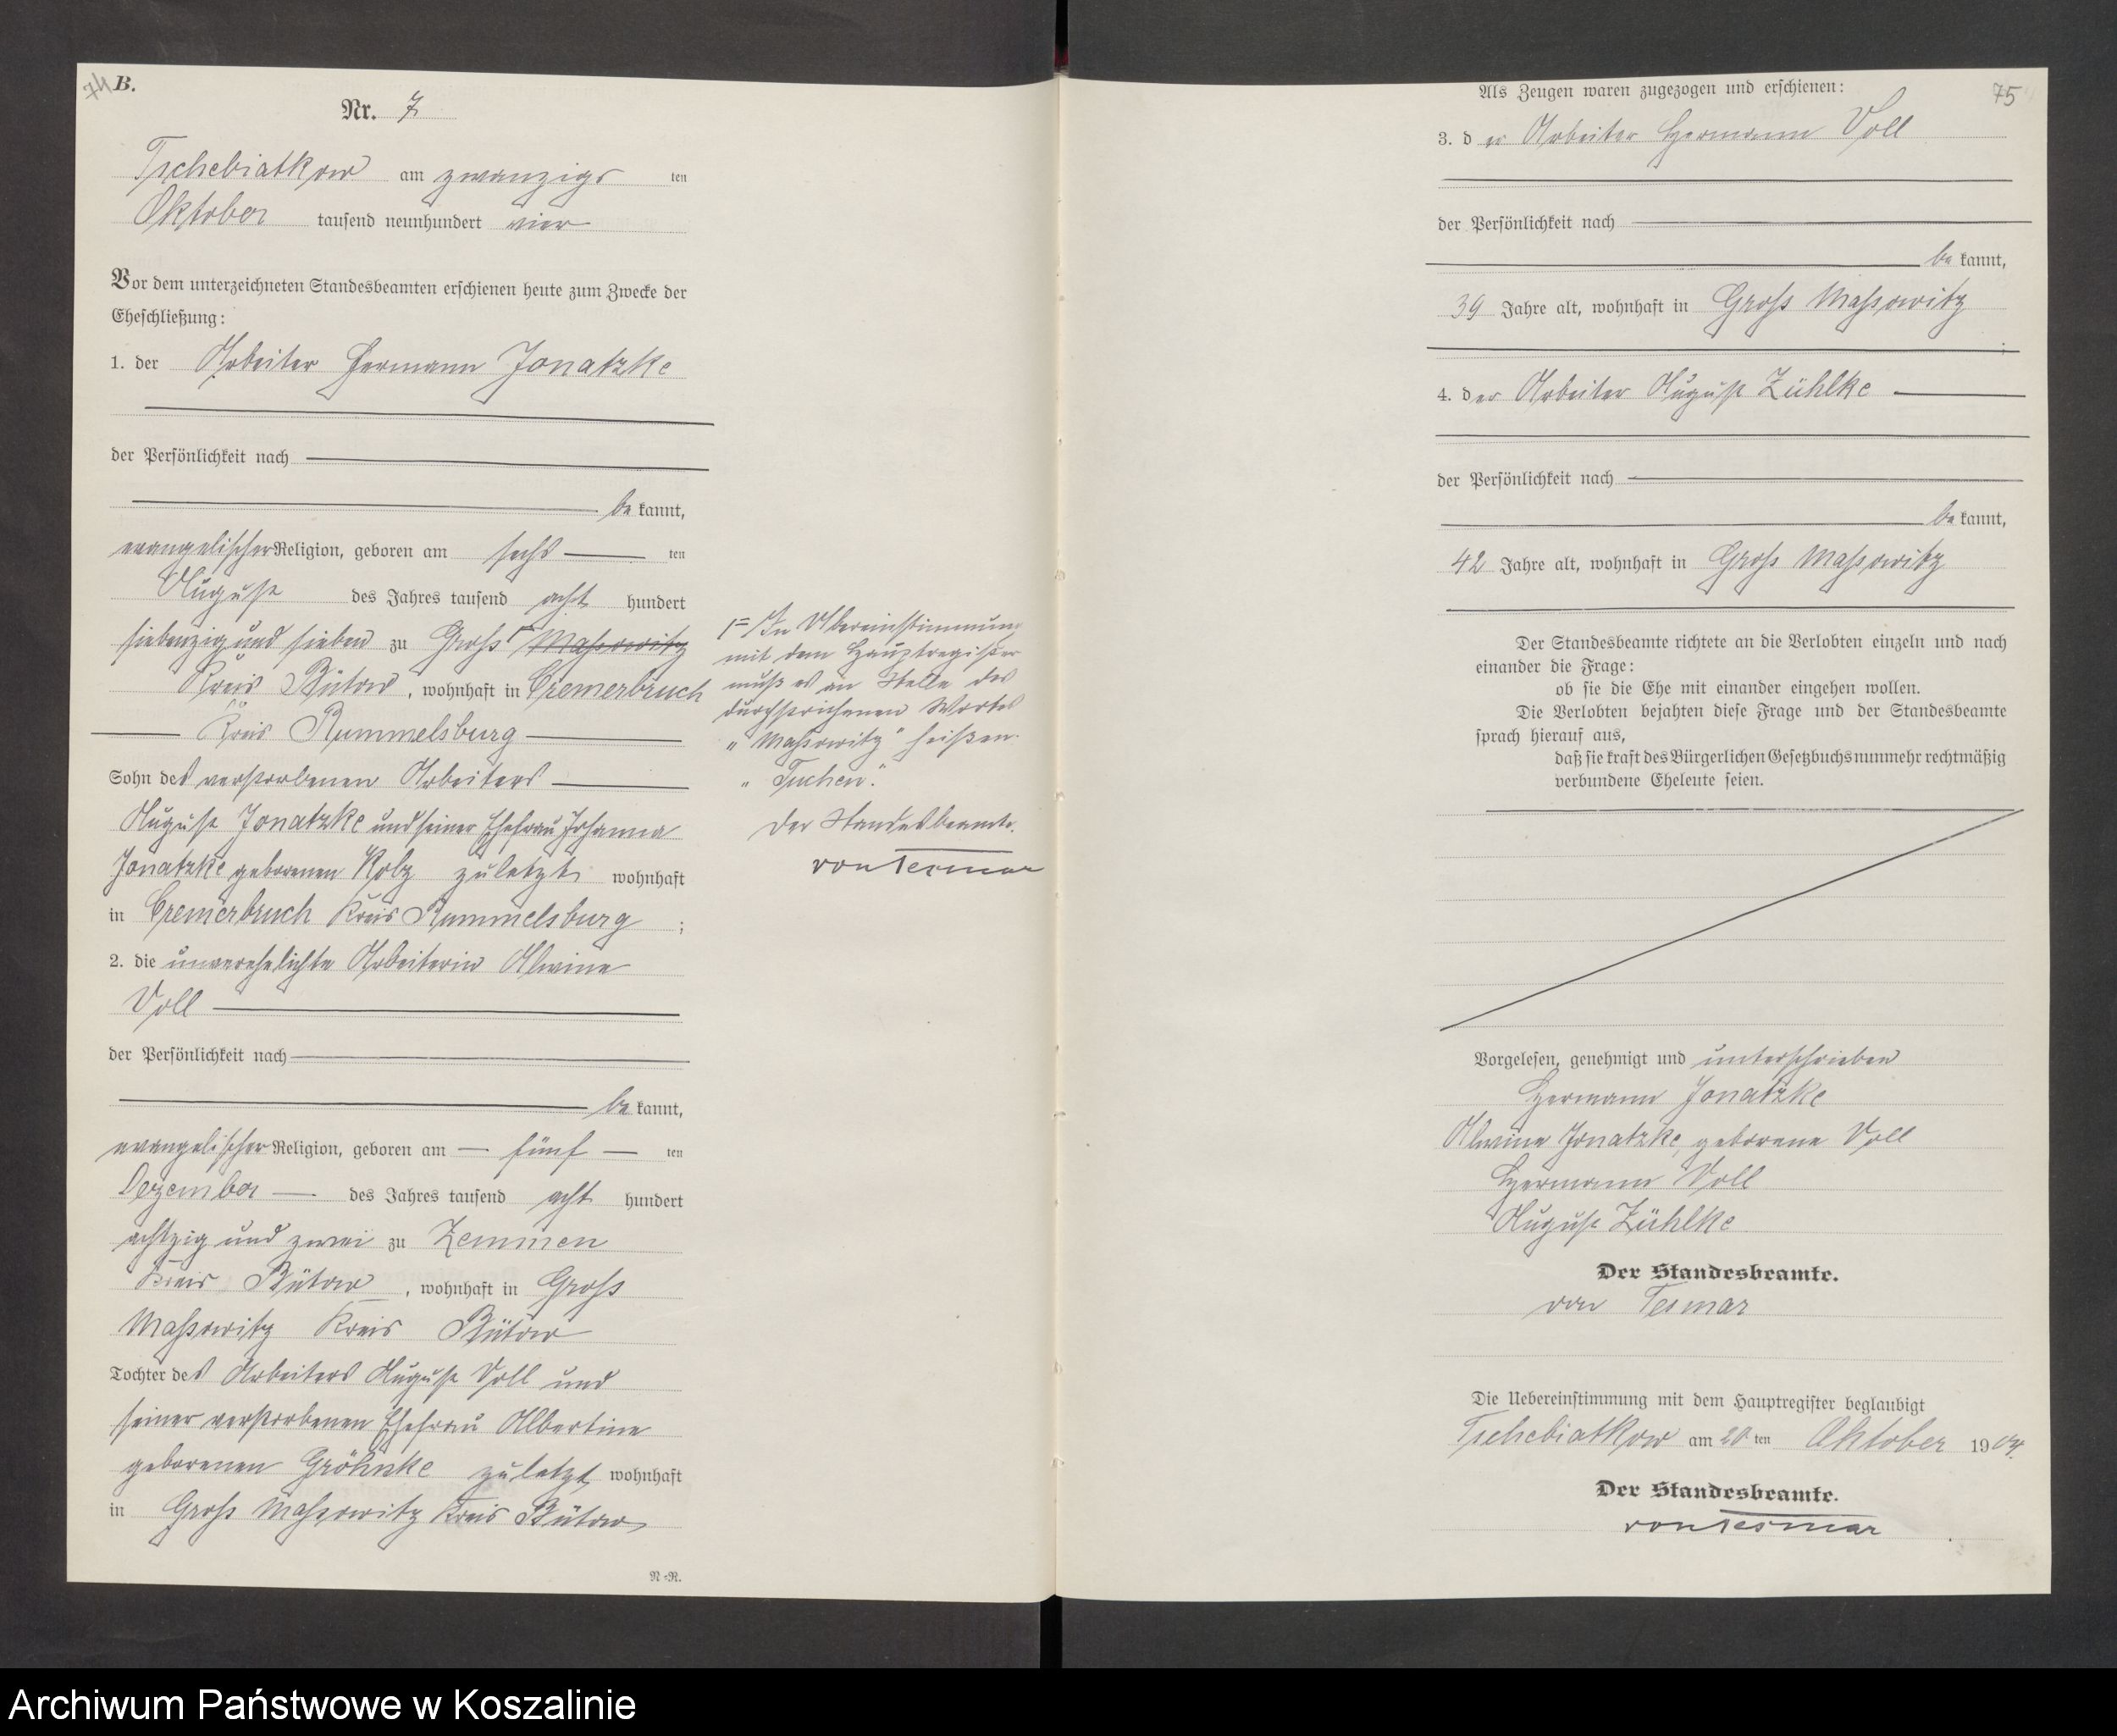 74 B.
Nr. 7
Tschebiatkow am zwanzigs ten
Oktober tausend neunhundert vier
Vor dem unterzeichneten Standesbeamten erschienen heute zum Zwecke der
Eheschließung:
1. der Arbeiter Hermann Jonatzke
der Persönlichkeit nach
be kannt,
evangelischer Religion, geboren am sechs ten
August des Jahres tausend acht hundert
siebenzig und sieben zu Gross Massowitz
Kreis Bütow, wohnhaft in Cremerbruch
Kreis Rummelsburg
Sohn des verstorbenen Arbeiters
August Jonatzke und seiner Ehefrau Johanna
Jonatzke geborenen zuletzt wohnhaft
in Cremerbruch Kreis Rummelsburg ;
2. die unverehelichte Arbeiterin Alwine
Voll
der Persönlichkeit nach
be kannt,
evangelischer Religion, geboren am fünf ten
Dezember des Jahres tausend acht hundert
achtzig und zwei zu Zemmen
Kreis Bütow, wohnhaft in Gross
Massowitz Kreis Bütow
Tochter des Arbeiters August Voll und
seiner verstorbenen Ehefrau Albertine
geborenen Gröhnke zuletzt wohnhaft
in Gross Massowitz Kreis Bütow
N-R.
1= In Übereinstimmung
mit dem Hauptregister
muß es an Stelle des
durchstrichenen Wortes
„ Massowitz" heißen:
„ Tuchen".
Der Standesbeamte.
von Tesmar
75
Als Zeugen waren zugezogen und erschienen:
3. d er Arbeiter Hermann Voll
der Persönlichkeit nach
be kannt,
39 Jahre alt, wohnhaft in Gross Massowitz
;
4. d er Arbeiter August Zühlke
der Persönlichkeit nach
be kannt,
42 Jahre alt, wohnhaft in Gross Massowitz
Der Standesbeamte richtete an die Verlobten einzeln und nach
einander die Frage:
ob sie die Ehe mit einander eingehen wollen.
Die Verlobten bejahten diese Frage und der Standesbeamte
sprach hierauf aus,
daß sie kraft des Bürgerlichen Gesetzbuchs nunmehr rechtmäßig
verbundene Eheleute seien.
Vorgelesen, genehmigt und unterschrieben
Hermann Jonatzke
Alwine Jonatzke, geborene Voll
Hermann Voll
August Zühlke
Der Standesbeamte.
von Tesmar
Die Uebereinstimmung mit dem Hauptregister beglaubigt
Tschebiatkow am 20 ten Oktober 1904.
Der Standesbeamte.
von Tesmar
Archiwum Państwowe w Koszalinie